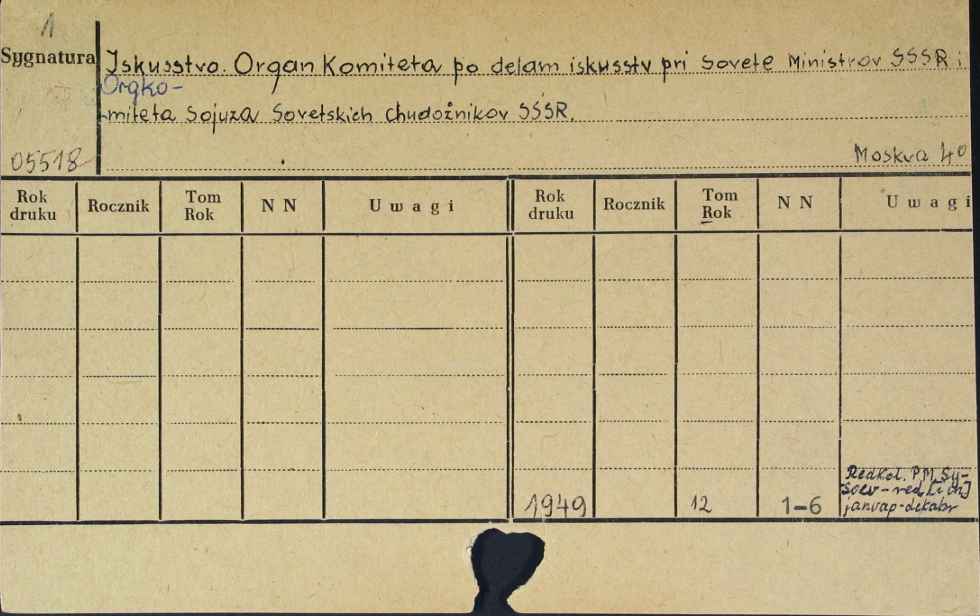 1
Sygnatura
Iskusstvo. Organ Komiteta po delam iskusstv pri Sovete Ministrov SSSR i
Orgko-
miteta Sojuza Sovetskich chudožnikov SSSR.
05518
Moskva 40
Rok druku Rocznik Tom Rok NN Uwagi Rok druku Rocznik Tom Rok NN Uwagi
Redkol. P.M. Sy-
soev - red. [i dr.]
1949 12 1-6 janvap-dekabr